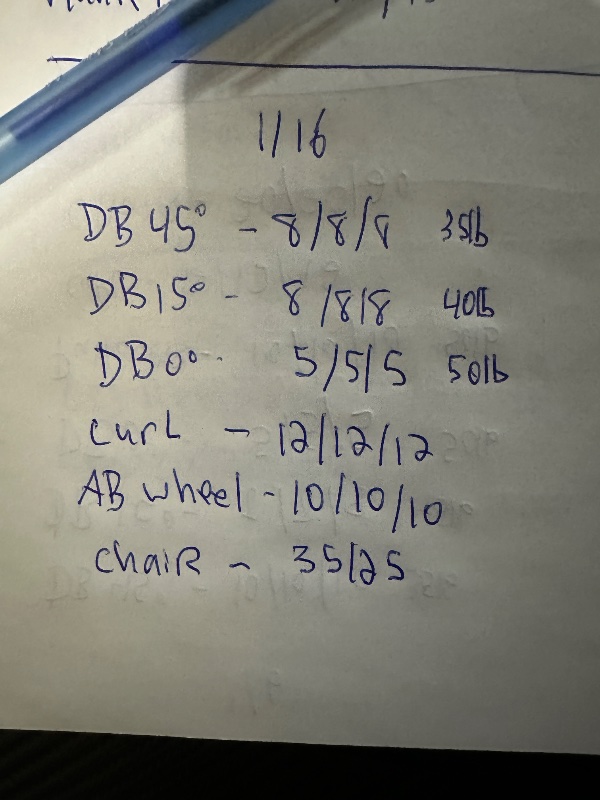 1/16
DB 45° - 8/8/8 35lb
DB 15° - 8/8/8 40lb
DB 0° - 5/5/5 50lb
Curl - 12/12/12
AB wheel - 10/10/10
ChaiR - 35/25